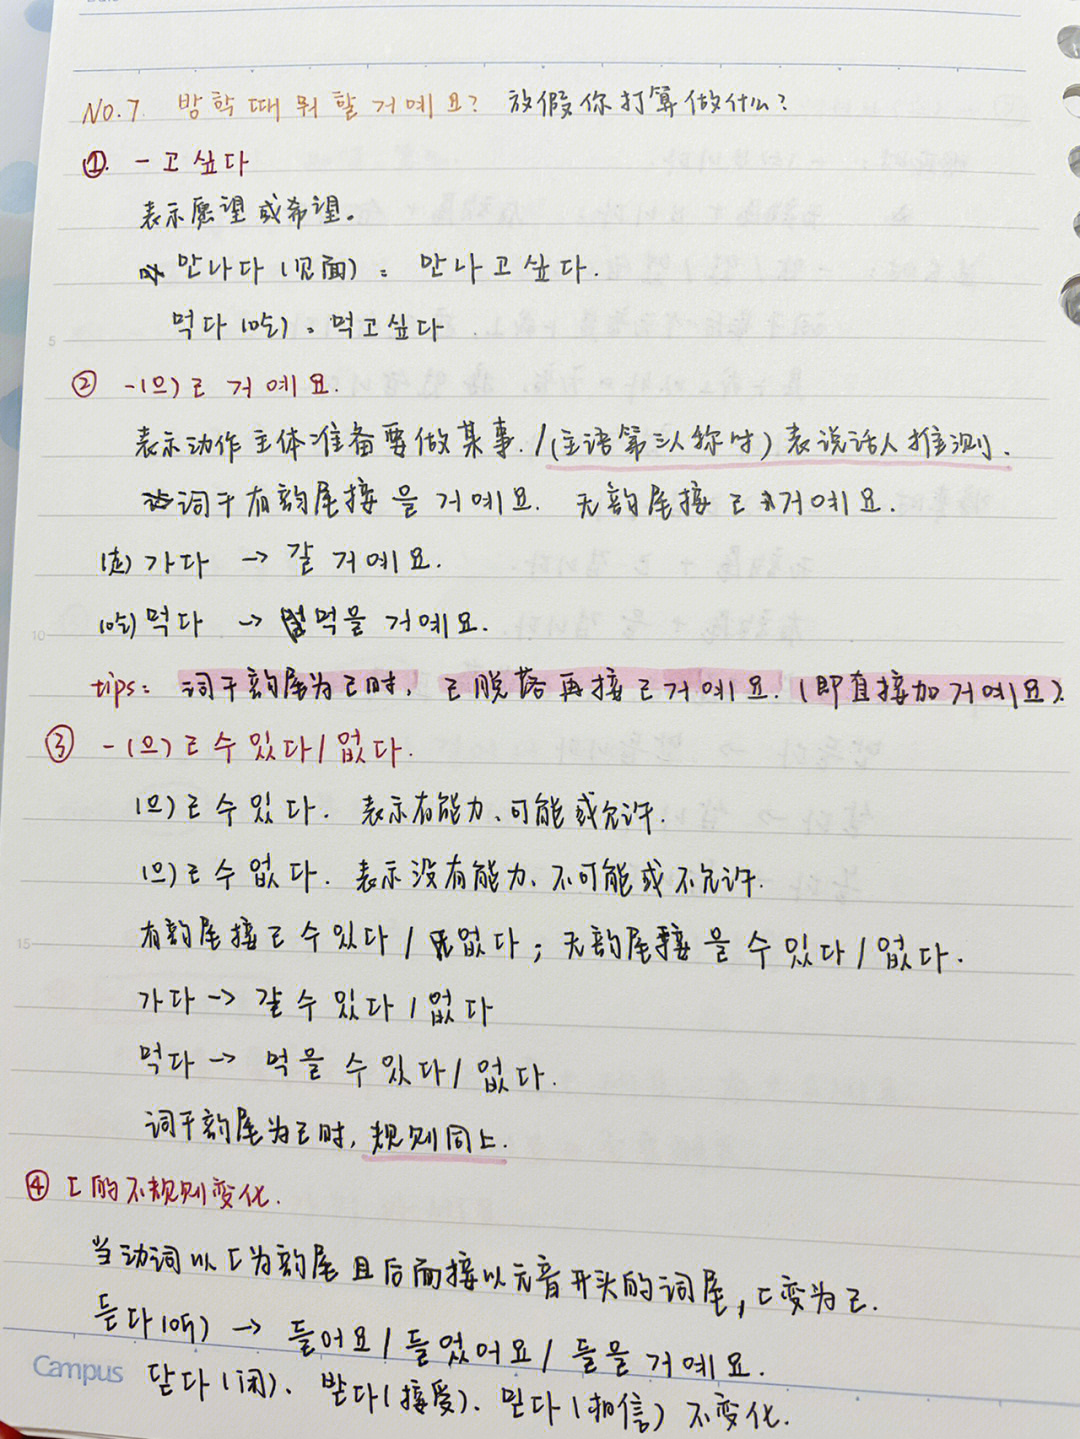 No.7 방학때 뭐 할 거예요? 放假你打算做什么?
①. -고 싶다
表示愿望或希望。
만나다(见面): 만나고 싶다.
먹다(吃): 먹고 싶다
② -(으)ㄹ 거예요.
表示动作主体准备要做某事./(主语第三人称时)表说话人推测.
词干有韵尾接을 거예요. 无韵尾接ㄹ거예요.
(走)가다 → 갈 거예요.
(吃)먹다 → 먹을 거예요.
tips: 词干韵尾为ㄹ时, ㄹ脱落再接ㄹ거예요. (即直接加거예요).
③ -(으)ㄹ 수 있다/없다.
(으)ㄹ 수 있다. 表示有能力、可能或允许.
(으)ㄹ 수 없다. 表示没有能力、不可能或不允许.
有韵尾接ㄹ 수 있다/없다; 无韵尾接을 수 있다/없다.
가다→ 갈 수 있다/없다
먹다→ 먹을 수 있다/없다.
词干韵尾为ㄹ时, 规则同上.
④ ㄷ的不规则变化.
当动词以ㄷ为韵尾且后面接以元音开头的词尾, ㄷ变为ㄹ.
듣다(听) → 들어요/들었어요/들을 거예요.
Campus
닫다(闭). 받다(接受). 믿다(相信) 不变化.
5
10
15